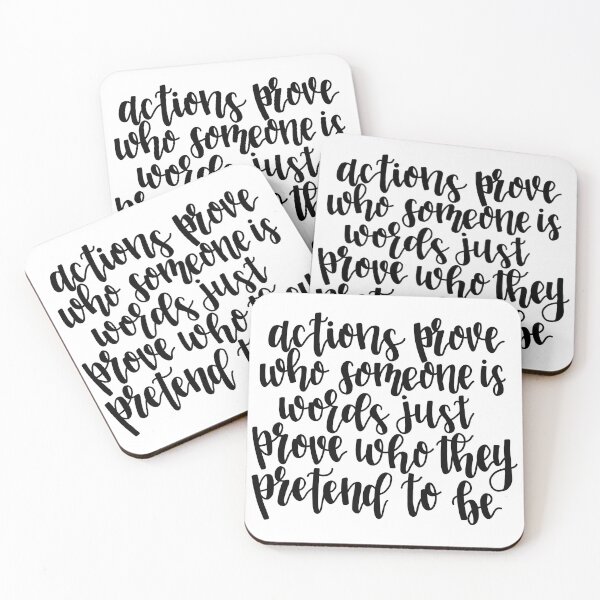 actions prove
who someone is
words just
actions prove
who someone is
words just
prove who they
be
actions prove
who someone is
words just
prove who
pretend to
actions prove
who someone is
words just
prove who they
pretend to be